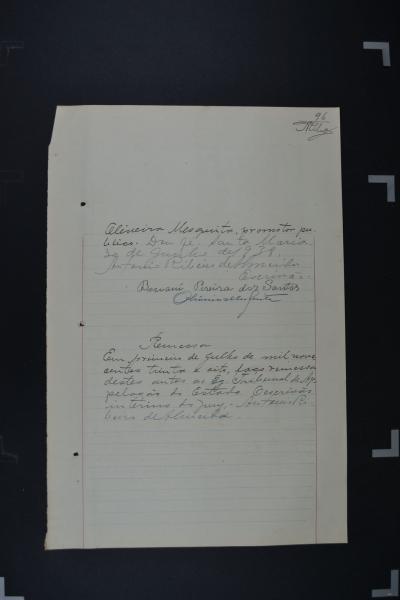 96
Oliveira Mesquita, promotor pu-
blico. Dou fé. Santa Maria,
de Junho de 938.
Antonio Ribeiro de Almeida
Escrivão.
Pereira dos Santos
Remessa
Em primeiro de Julho de mil nove
centos trinta e oito, faço remessa
destes autos ao Eg. Tribunal de Ap-
pelação do Estado. O escrivão
interino do Jury, Antonio Ri-
beiro de Almeida.